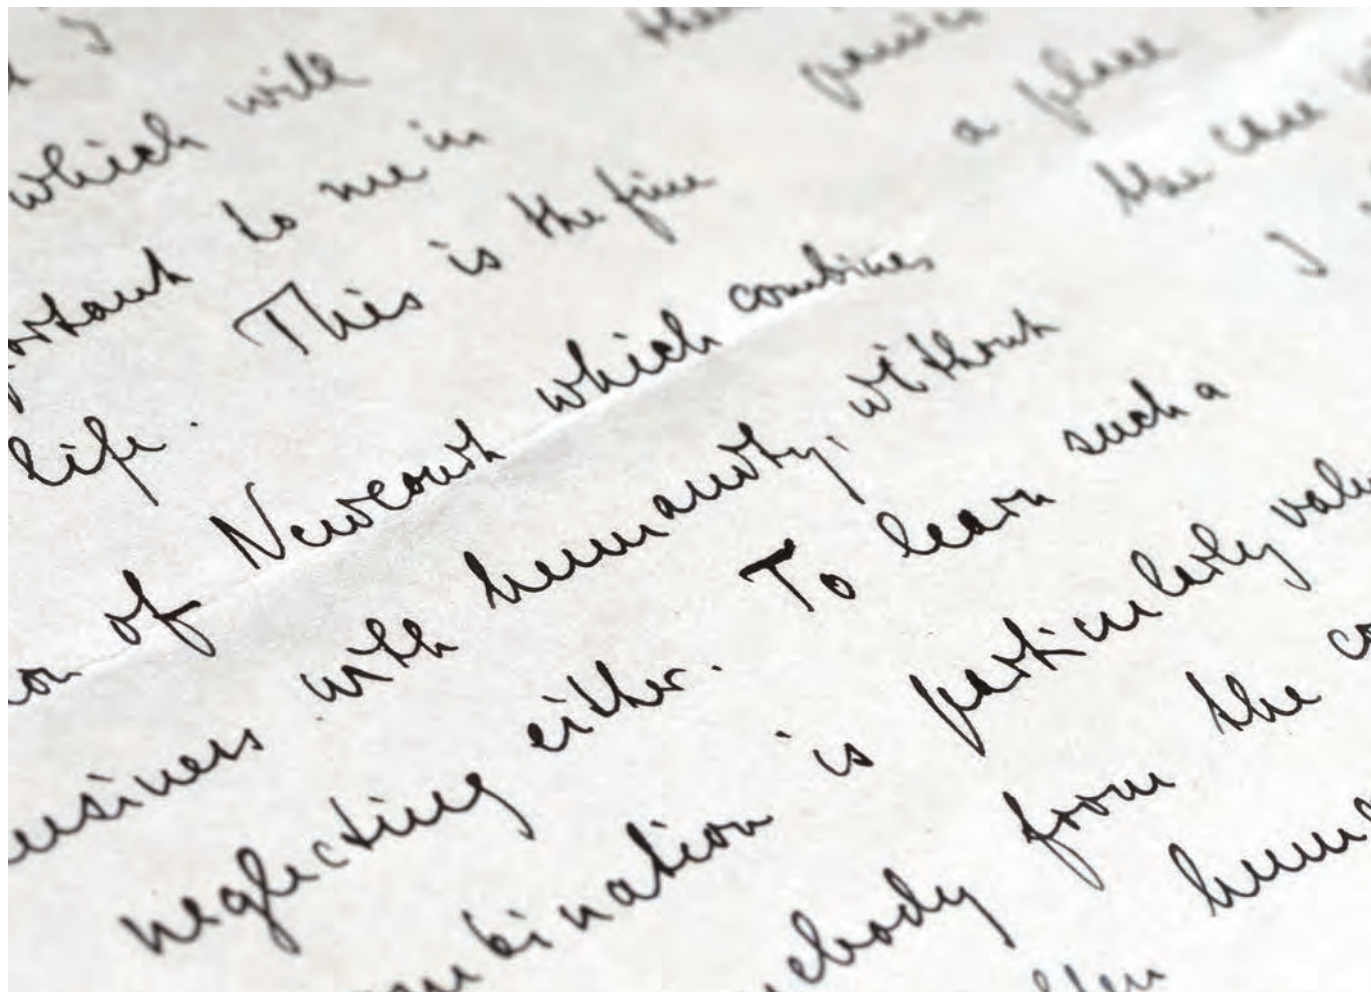 which will
ortant to me in
life. This is the fine
on of Newcourt which combines
usiness with humanity, without
neglecting either. To learn such a
mbination is particularly valu
ebody from the co
hum
a place
the case
I